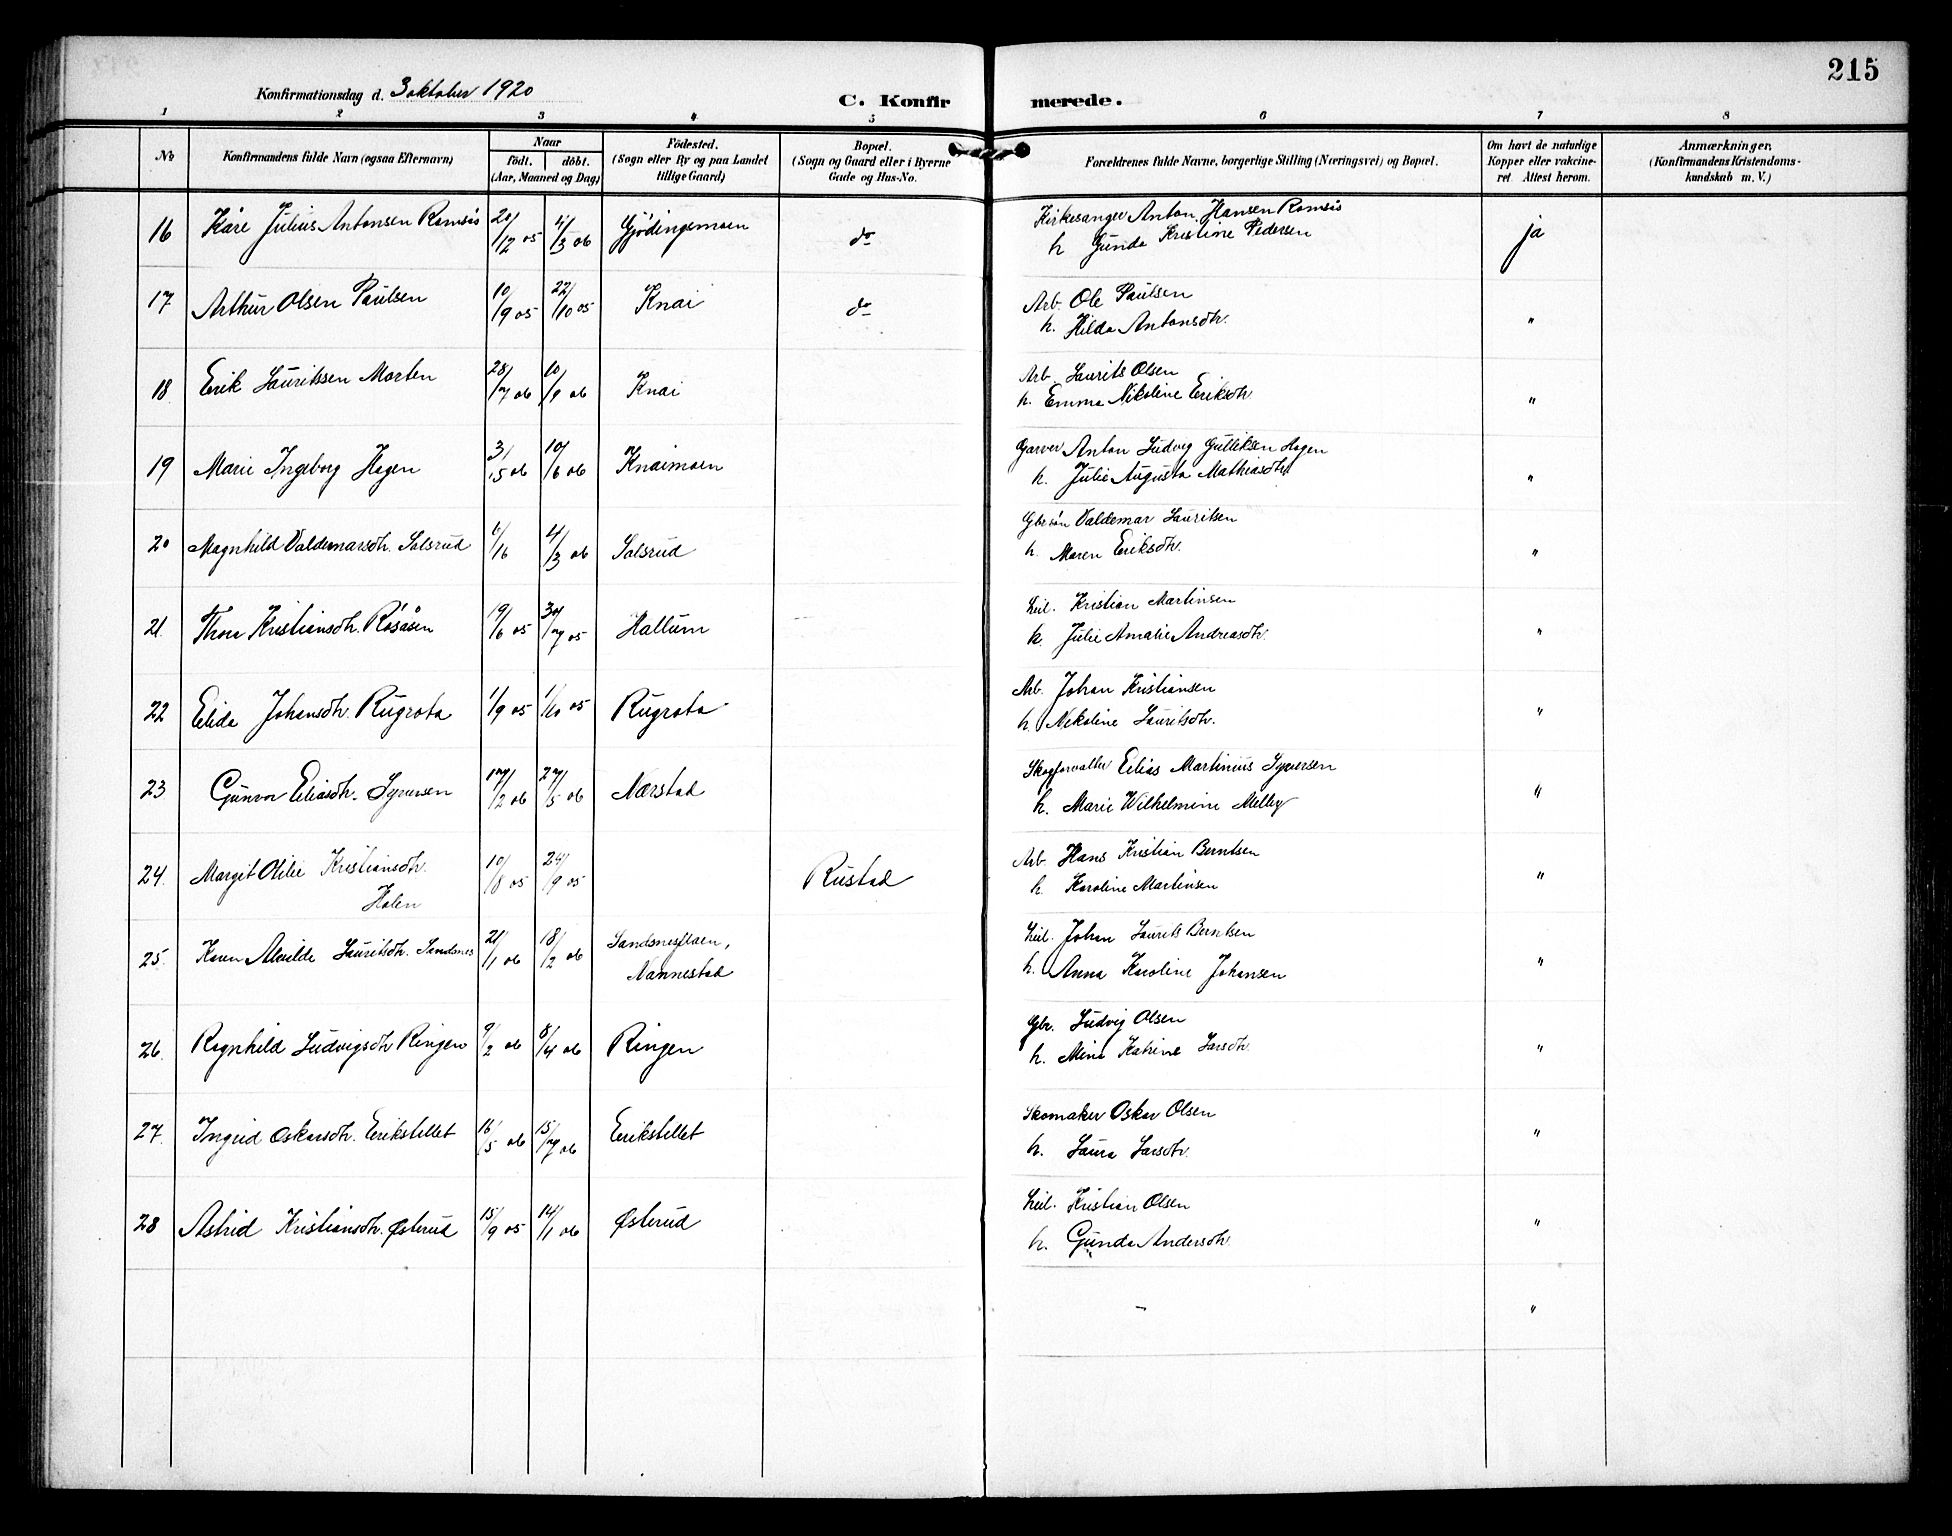 215
Konfirmationsdag d. 3 oktober 1920
C. Konfirmerede.
1 2 3 4 5 6 7 8
No
Konfirmandens fulde Navn (ogsaa Efternavn)
Naar
født. døbt.
(Aar, Maaned og Dag)
Födested.
(Sogn eller By og paa Landet
tillige Gaard)
Bopæl.
(Sogn og Gaard eller i Byerne
Gade og Hus-No.
Forældrenes fulde Navne, borgerlige Stilling (Næringsvei) og Bopæl.
Om havt de naturlige
Kopper eller vakcine-
ret Attest herom.
Anmærkninger.
(Konfirmandens Kristendoms-
kundskab m. V.)
16 Kåre Julius Antonsen Ramsös 20/12 05 4/3 06 Gjödingsmoen do Kirkesanger Anton Hansen Ramsös ja
h Gunda Kristine Pedersen
17 Arthur Olsen Paulsen 10/9 05 22/10 05 Knai do Arb. Ole Paulsen "
h. Hilda Antonsdtr.
18 Erik Lauritssen Morten 28/7 06 10/9 06 Knai Arb. Laurits Olsen "
h. Emma Nikoline Eriksdtr
19 Marie Ingeborg Hagen 3/5 06 10/6 06 Knaimoen Garver Anton Ludvig Gulliksen Hagen "
h. Julie Augusta Mathiasdtr
20 Magnhild Valdemarsdtr. Solsrud 6/16 4/3 06 Solsrud Gbrsön Valdemar Lauritsen "
h. Maren Eriksdtr.
21. Thora Kristiansdtr. Råsåsen 19/6 05 30/7 05 Hallum Leil. Kristian Martinsen "
h. Julie Amalie Andreasdtr.
22 Elida Johansdtr. Rugrota 1/9 05 1/10 05 Rugrota Arb. Johan Kristiansen "
h. Nikoline Lauritsdtr.
23 Gunvor Eliasdtr. Syversen 17/2 06 27/5 06 Nærstad Skogforvalter Elias Martinius Syversen "
h. Marie Wilhelmine Melby
24. Margit Otilie Kristiansdtr. 10/8 05 24/9 05 Rustad Arb. Hans Kristian Berntsen "
Holen h. Karoline Martinsen
25. Karen Alvilde Lauritsdtr. Sandsnes 21/1 06 18/2 06 Sandsnesflaen, Leil. Johan Laurits Berntsen "
Nannestad h. Anna Karoline Johansen
26. Ragnhild Ludvigsdtr Ringen 9/2 06 8/4 06 Ringen Gbr. Ludvig Olsen "
h. Mina Katrine Larsdtr.
27. Ingrid Oskarsdtr. Erikstellet 16/5 06 15/7 06 Erikstellet Skomaker Oskar Olsen "
h. Laura Larsdtr.
28 Astrid Kristiansdtr. Østerud 15/9 05 14/1 06 Østerud Leil. Kristian Olsen "
h. Gunda Andersdtr.
– "